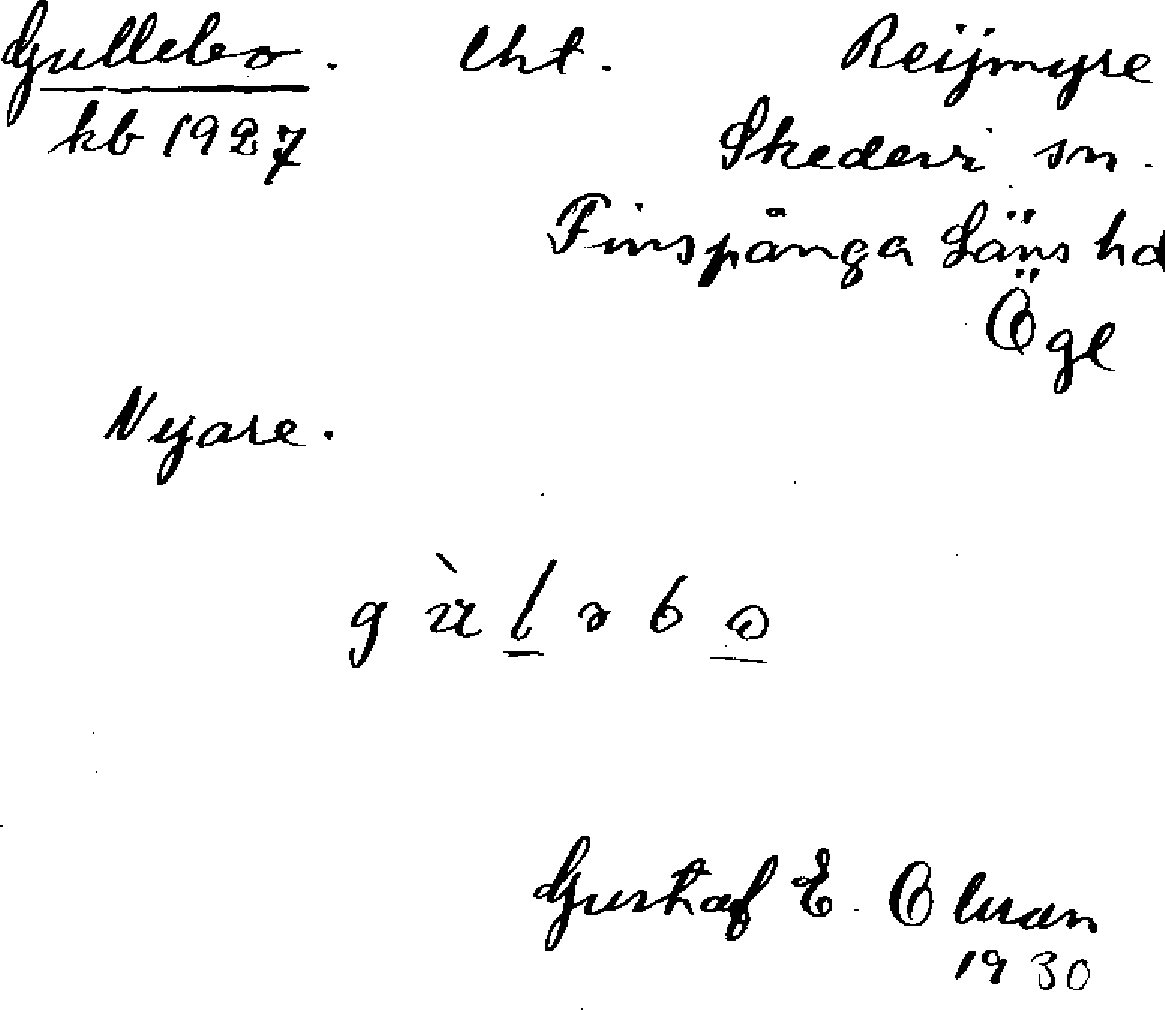 Gullebo. lht. Reijmyre
kb 1927 Skedevi sn.
Finspånga Läns hd
Ögl
Nyare.
Gustaf E.
1930